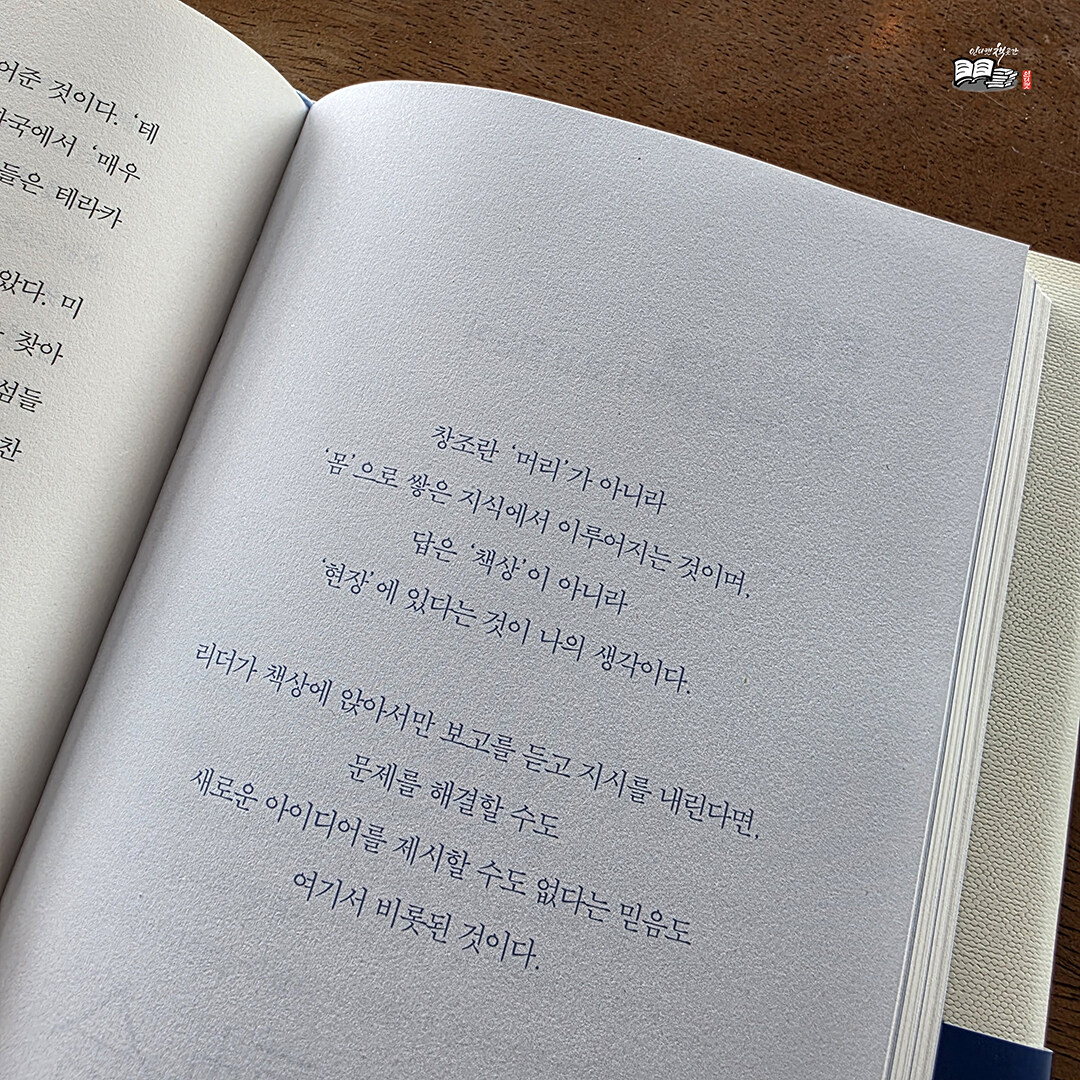 어준 것이다. ‘테
국에서 ‘매우
들은 테라카
았다. 미
찾아
섬들
찬
창조란 ‘머리’가 아니라
‘몸’으로 쌓은 지식에서 이루어지는 것이며,
답은 ‘책상’이 아니라
‘현장’에 있다는 것이 나의 생각이다.
리더가 책상에 앉아서만 보고를 듣고 지시를 내린다면,
문제를 해결할 수도
새로운 아이디어를 제시할 수도 없다는 믿음도
여기서 비롯된 것이다.